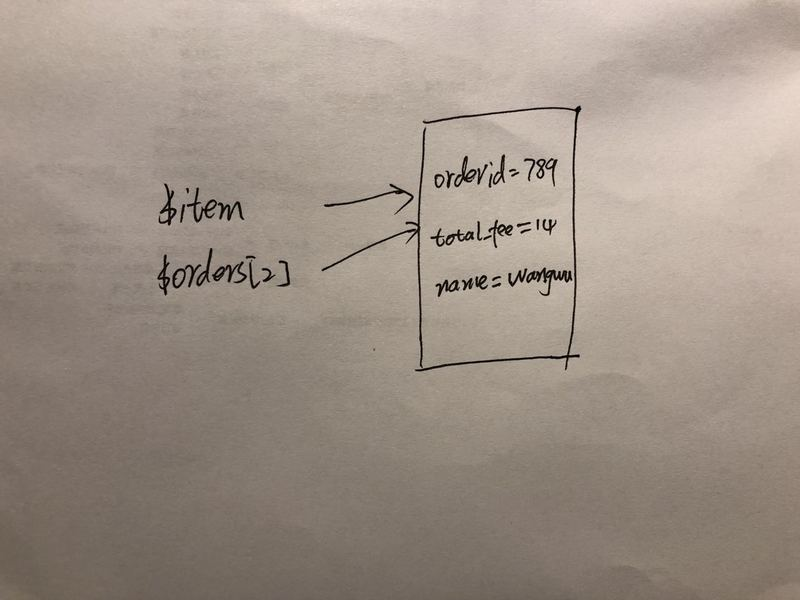 $item
$orders[2]
orderid=789
total_fee=14
name=wangwu